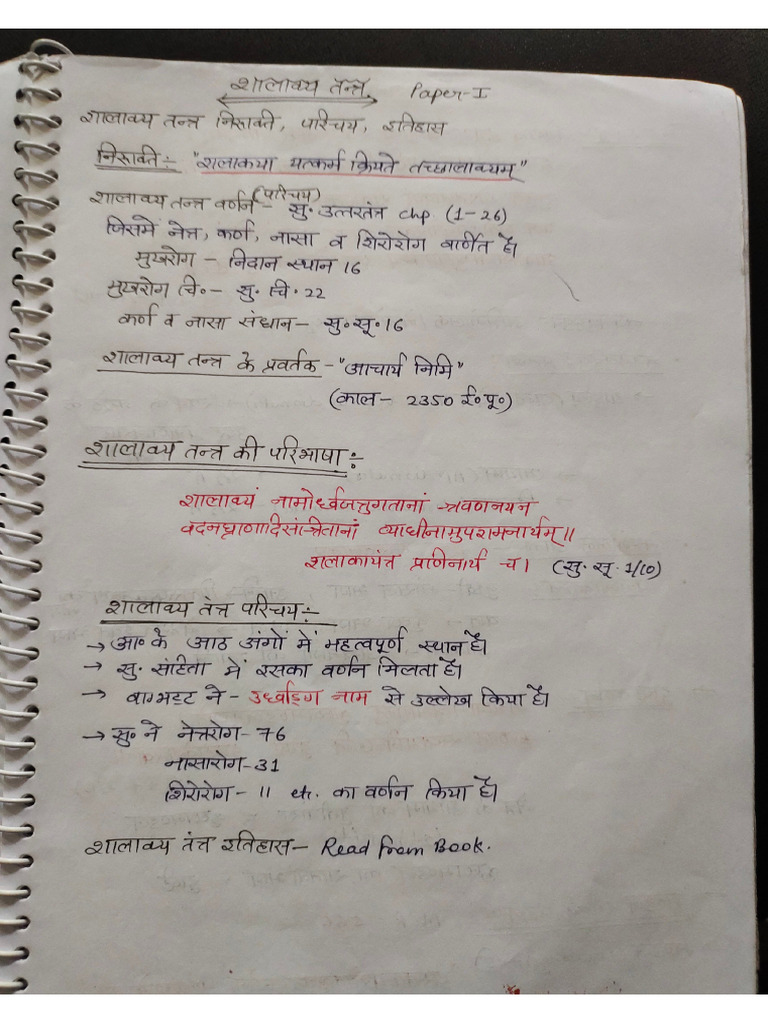 शालाक्य तन्त्र Paper-I
शालाक्य तन्त्र निरूक्ती, परिचय, इतिहास
निरूक्ती:- "शलाकया यत्कर्म क्रियते तच्छालाक्यम्"
शालाक्य तन्त्र वर्णन (परिचय) - सु॰ उत्तरतंत्र chp (1-26)
जिसमें नेत्र, कर्ण, नासा व शिरोरोग वार्णित है।
मुखरोग - निदान स्थान 16
मुखरोग चि॰- सु॰ चि॰ 22
कर्ण व नासा संधान- सु॰सू॰16
शालाक्य तन्त्र के प्रवर्तक - "आचार्य निमि"
(काल- 2350 ई॰पू॰)
शालाक्य तन्त्र की परिभाषा:-
शालाक्यं नामोर्ध्वजत्रुगतानां श्रवणनयन
वदनघ्राणादिसंश्रितानां व्याधीनामुपशमनार्थम्॥
शलाकायंत्र प्राणिनार्थ च। (सु॰ सू॰ 1/10)
शालाक्य तंत्र परिचय:-
→ आ॰ के आठ अंगों में महत्वपूर्ण स्थान है।
→ सु॰ संहिता में इसका वर्णन मिलता है।
→ वाग्भट्ट ने - उर्ध्वाङ्ग नाम से उल्लेख किया है।
→ सु॰ ने नेत्ररोग-76
नासारोग-31
शिरोरोग- 11 etc. का वर्णन किया है।
शालाक्य तंत्र इतिहास- Read from Book.